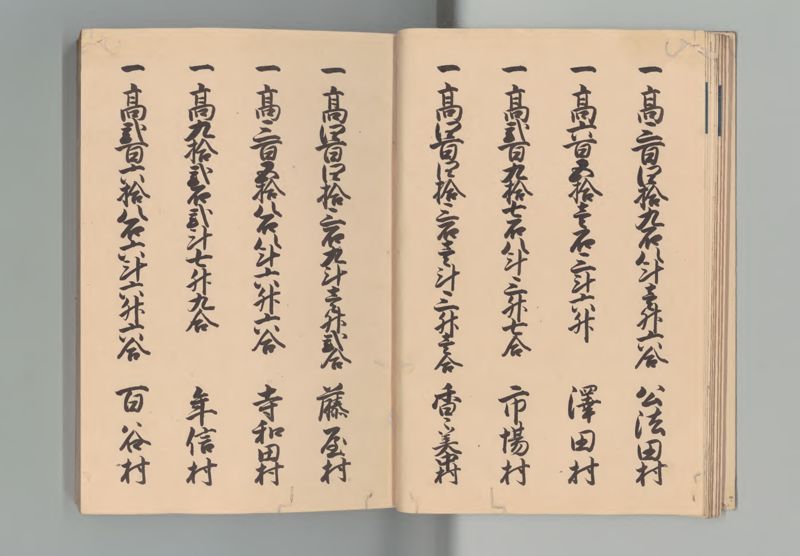 一髙三百四拾九石八斗壱升六合 公法田村
一髙六百五拾壱石三斗六升 澤田村
一髙弐百九拾七石八斗三升七合 市場村
一髙四百四拾三石壱斗三升壱合 香々美中村
一髙四百四拾三石九斗壱升弐合 藤屋村
一髙三百五拾八石八斗六升六合 寺和田村
一髙九拾弐石弐斗七升九合 年信村
一髙弐百六拾八石六斗六升六合 百谷村